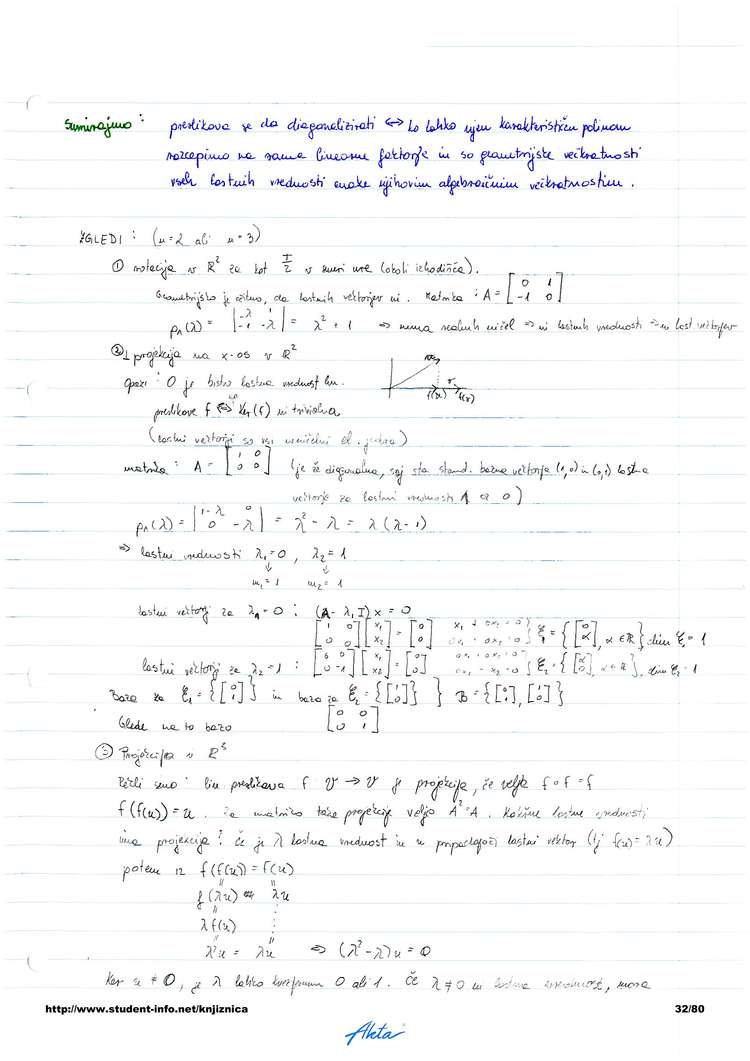 Sumirajmo: preslikava se da diagonalizirati <=> ko lahko njen karakterističen polinom
razcepimo na same linearne faktorje in so geometrijske večkratnosti
vseh lastnih vrednosti enake njihovim algebraičnim večkratnostim.
ZGLEDI: (n=2 ali n=3)
① rotacija v R² za kot π/2 v smeri ure (okoli izhodišča).
Geometrijsko je očitno, da lastnih vektorjev ni. Matrika: A = [0 1; -1 0]
p_A(λ) = |-λ 1; -1 -λ| = λ² + 1 => nima realnih ničel => ni lastnih vrednosti => ni last vektorjev
② ⊥ projekcija na x-os v R²
opazi: 0 je bistv lastna vrednost lin.
preslikave f <=> Ker(f) ni trivialna
f(x) f(v)
(lastni vektorji so vsi neničelni el. jedra)
matrika: A = [1 0; 0 0] (je že diagonalna, saj sta stand. bazna vektorja (1,0) in (0,1) lastna
vektorja za lastni vrednosti 1 oz 0)
p_A(λ) = |1-λ 0; 0 -λ| = λ² - λ = λ(λ-1)
=> lastni vrednosti λ₁=0, λ₂=1
m₁=1 m₂=1
lastni vektorji za λ₁=0: (A-λ₁I)x = 0
[1 0; 0 0][x₁; x₂] = [0; 0] x₁ + 0x₂ = 0 0x₁ + 0x₂ = 0 } ξ₁ = {[0; α], α∈R} dim ξ₁ = 1
lastni vektorji za λ₂=1: [0 0; 0 -1][x₁; x₂] = [0; 0] 0x₁ + 0x₂ = 0 0x₁ - x₂ = 0 } ξ₂ = {[α; 0], α∈R}, dim ξ₂ = 1
Baza za ξ₁ = {[0; 1]} in baza za ξ₂ = {[1; 0]} } B = {[0; 1], [1; 0]}
Glede na to bazo [0 0; 0 1]
③ Projekcija v R³
Rekli smo: lin preslikava f V → V je projekcija, če velja f∘f = f
f(f(u)) = u. Za matriko take projekcije veljo A² = A. Kakšne lastne vrednosti
ima projekcija? Če je λ lastna vrednost in u pripadajoči lastni vektor (tj f(u) = λu)
potem iz f(f(u)) = f(u)
f(λu) = λu
λf(u)
λ²u = λu => (λ²-λ)u = 0
Ker u ≠ 0, je λ lahko kvečjemu 0 ali 1. Če λ ≠ 0 ni lastna vrednost, mora
http://www.student-info.net/knjiznica 32/80
Akta